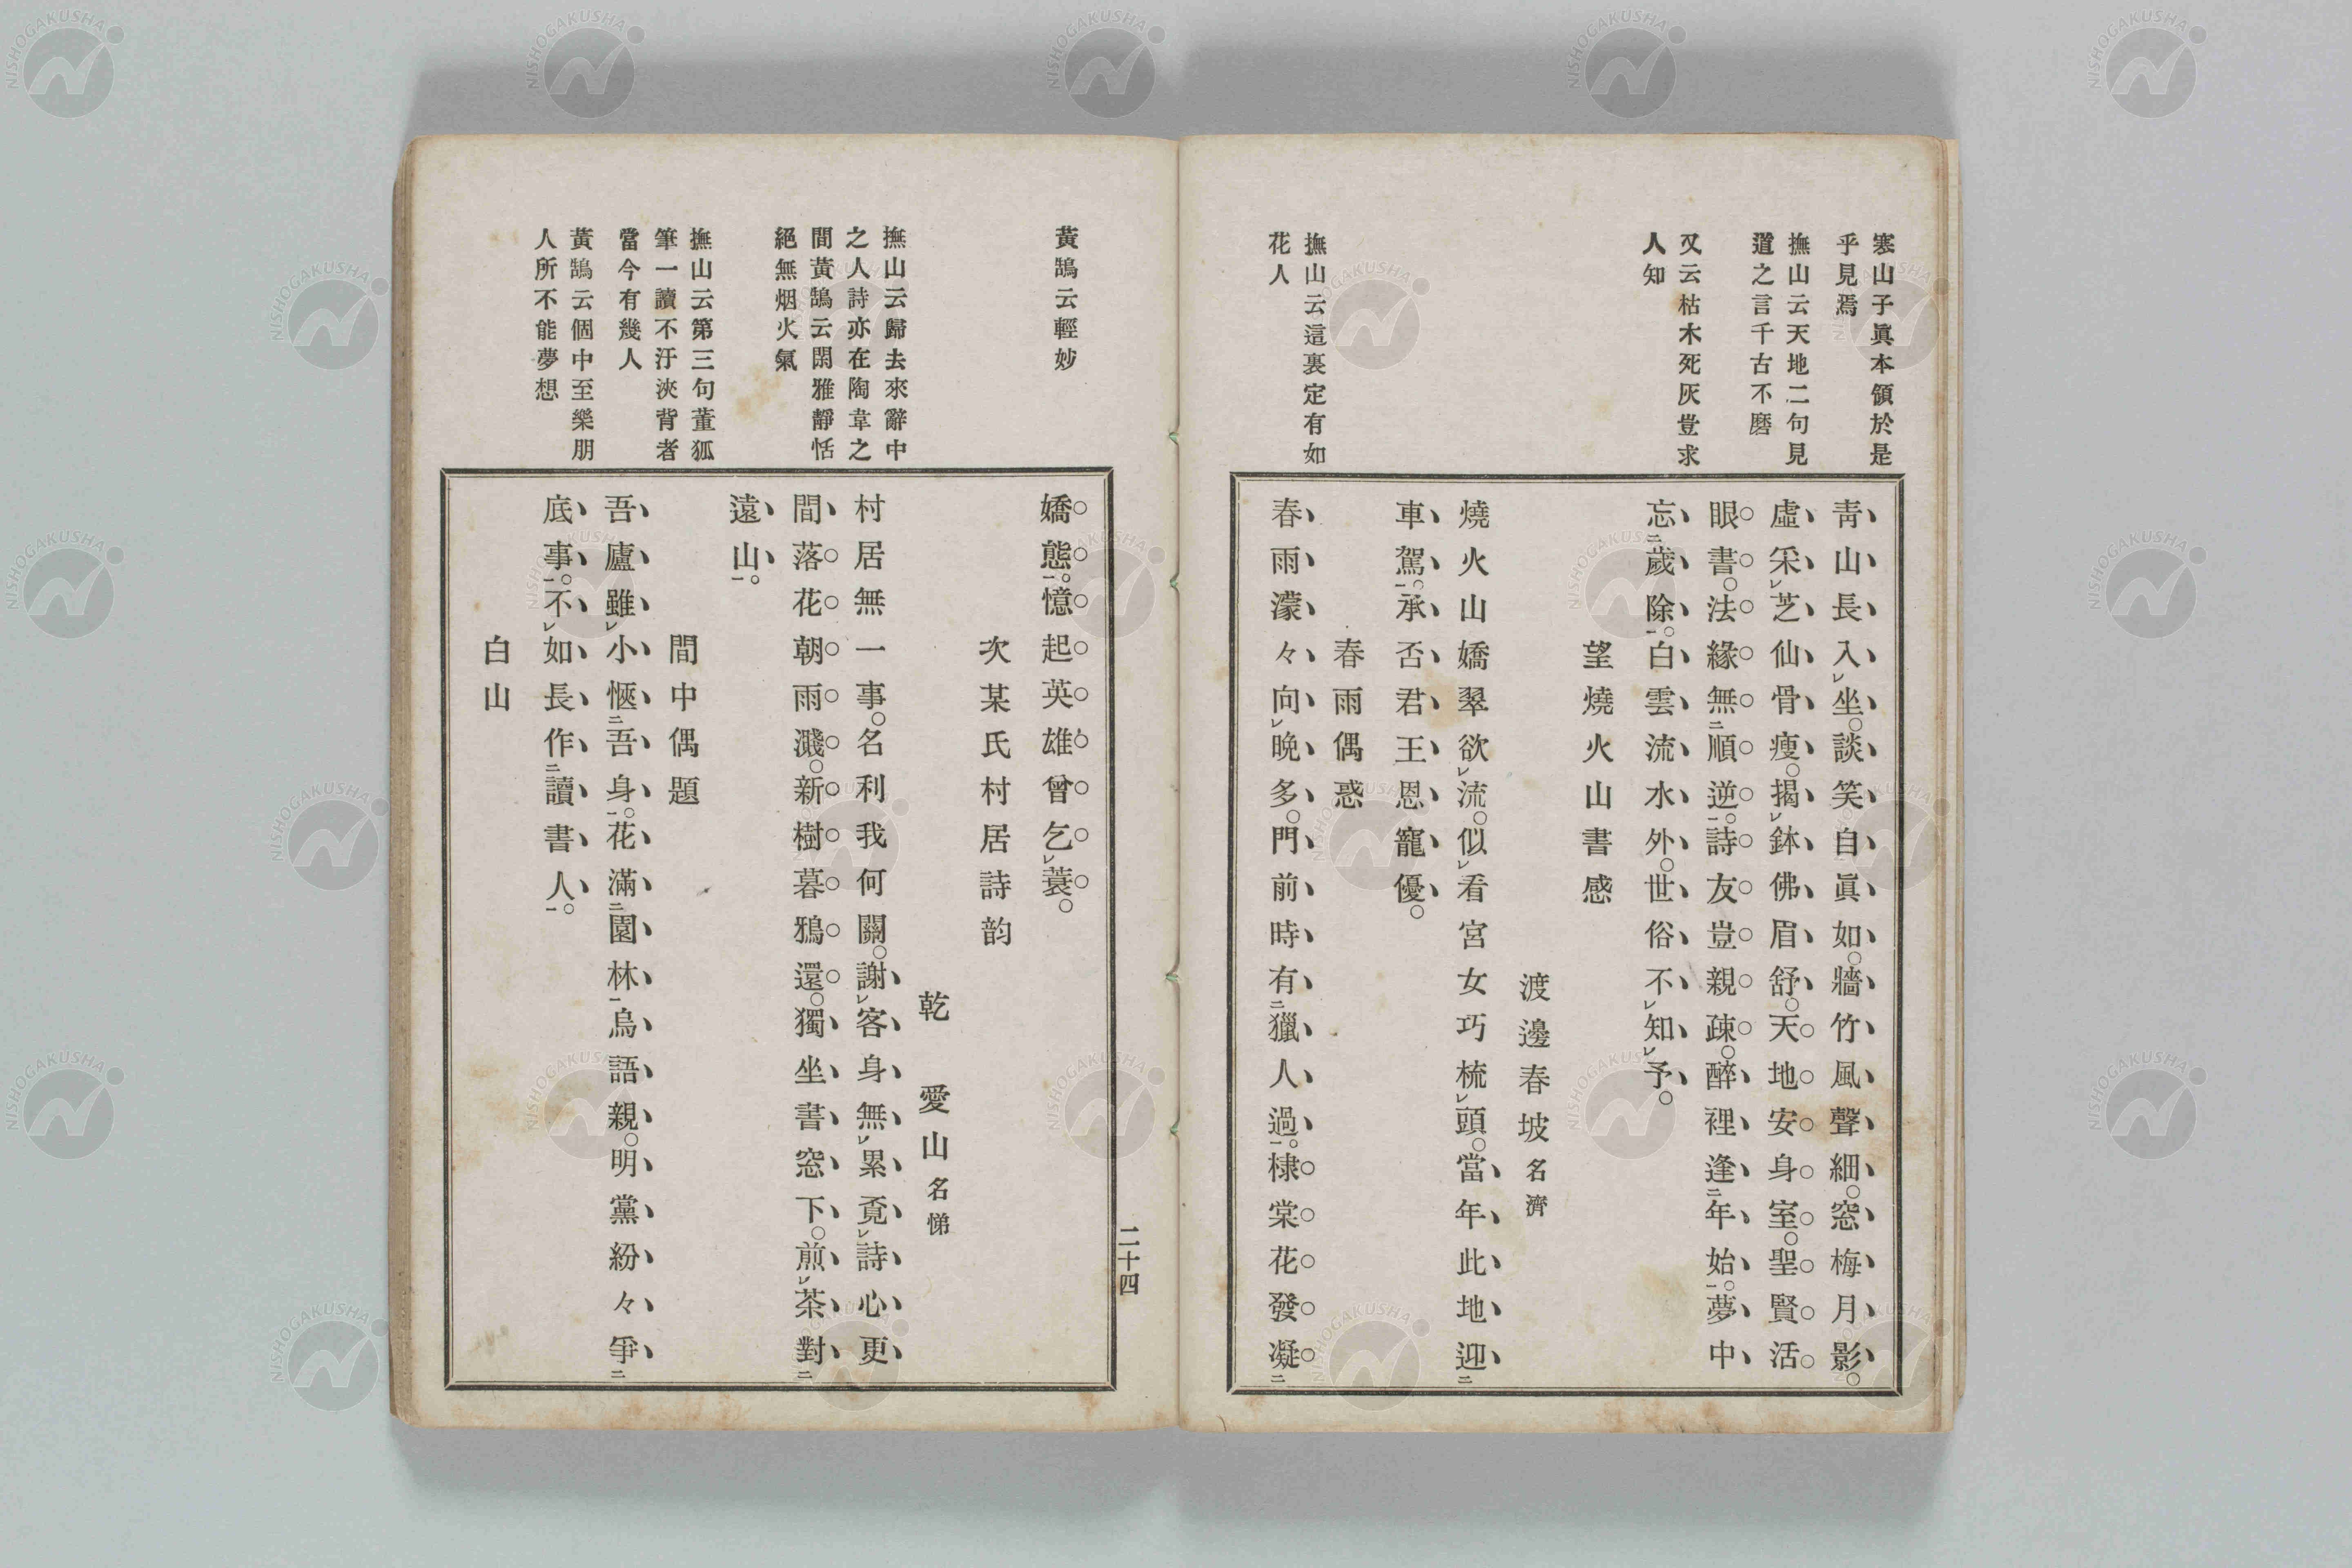 寒山子眞本領於是
乎見焉
撫山云天地二句見
道之言千古不磨
又云枯木死灰豈求
人知
撫山云這裏定有如
花人
青山長入レ坐。談笑自眞如。牆竹風聲細。窓梅月影。
虛采レ芝仙骨瘦。揭レ鉢佛眉舒。天地安身室。聖賢活
眼書。法緣無二順逆一。詩友豈親疎。醉裡逢二年始一。夢中
忘二歲除一。白雲流水外。世俗不レ知レ予。
望燒火山書感
渡邊春坡名濟
燒火山嬌翠欲レ流。似レ看宮女巧梳レ頭。當年此地迎二
車駕一。承否君王恩寵優。
春雨偶惑
春雨濛々向レ晩多。門前時有二獵人過一。棣棠花發凝二
黃鵠云輕妙
撫山云歸去來辭中
之人詩亦在陶韋之
間黃鵠云閑雅靜恬
絕無烟火氣
撫山云第三句董狐
筆一讀不汙浹背者
當今有幾人
黃鵠云個中至樂朋
人所不能夢想
嬌態一。憶起英雄曾乞レ蓑。
次某氏村居詩韵
乾 愛山名悌
村居無一事。名利我何關。謝レ客身無レ累覔レ詩心更
間落花朝雨濺。新樹暮鴉還。獨坐書窓下。煎レ茶對二
遠山一。
間中偶題
吾廬雖レ小愜二吾身一。花滿二園林一鳥語親。明黨紛々爭二
底事一。不レ如長作二讀書人一。
白山
二十四
NISHOGAKUSHA